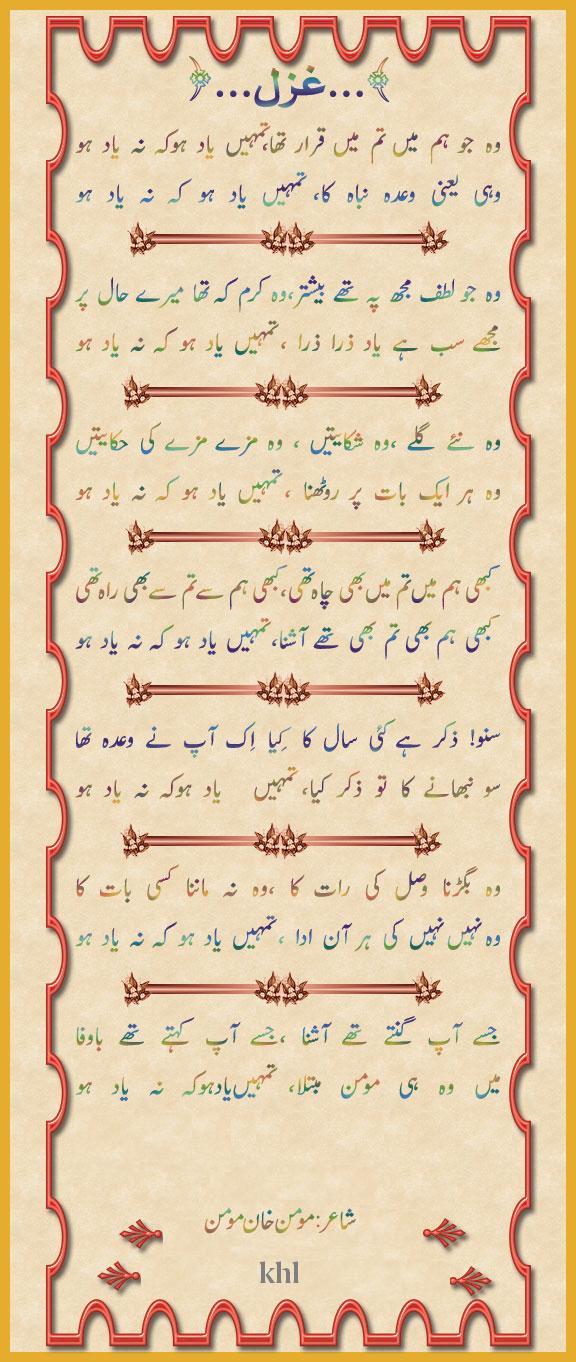 ...غزل...
وہ جو ہم میں تم میں قرار تھا،تمہیں یاد ہوکہ نہ یاد ہو
وہی یعنی وعدہ نباہ کا، تمہیں یاد ہو کہ نہ یاد ہو
وہ جو لطف مجھ پہ تھے بیشتر،وہ کرم کہ تھا میرے حال پر
مجھے سب ہے یاد ذرا ذرا ، تمہیں یاد ہو کہ نہ یاد ہو
وہ نئے گلے ،وہ شکایتیں ، وہ مزے مزے کی حکایتیں
وہ ہر ایک بات پر روٹھنا ، تمہیں یاد ہو کہ نہ یاد ہو
کبھی ہم میں تم میں بھی چاہ تھی،کبھی ہم سے تم سے بھی راہ تھی
کبھی ہم بھی تم بھی تھے آشنا،تمہیں یاد ہو کہ نہ یاد ہو
سنو! ذکر ہے کئی سال کا کِیا اِک آپ نے وعدہ تھا
سو نبھانے کا تو ذکر کیا، تمہیں یاد ہوکہ نہ یاد ہو
وہ بگڑنا وصل کی رات کا ،وہ نہ ماننا کسی بات کا
وہ نہیں نہیں کی ہر آن ادا ، تمہیں یاد ہو کہ نہ یاد ہو
جسے آپ گنتے تھے آشنا ،جسے آپ کہتے تھے باوفا
میں وہ ہی مومن مبتلا، تمہیں یاد ہوکہ نہ یاد ہو
شاعر:مومن خان مومن
khl